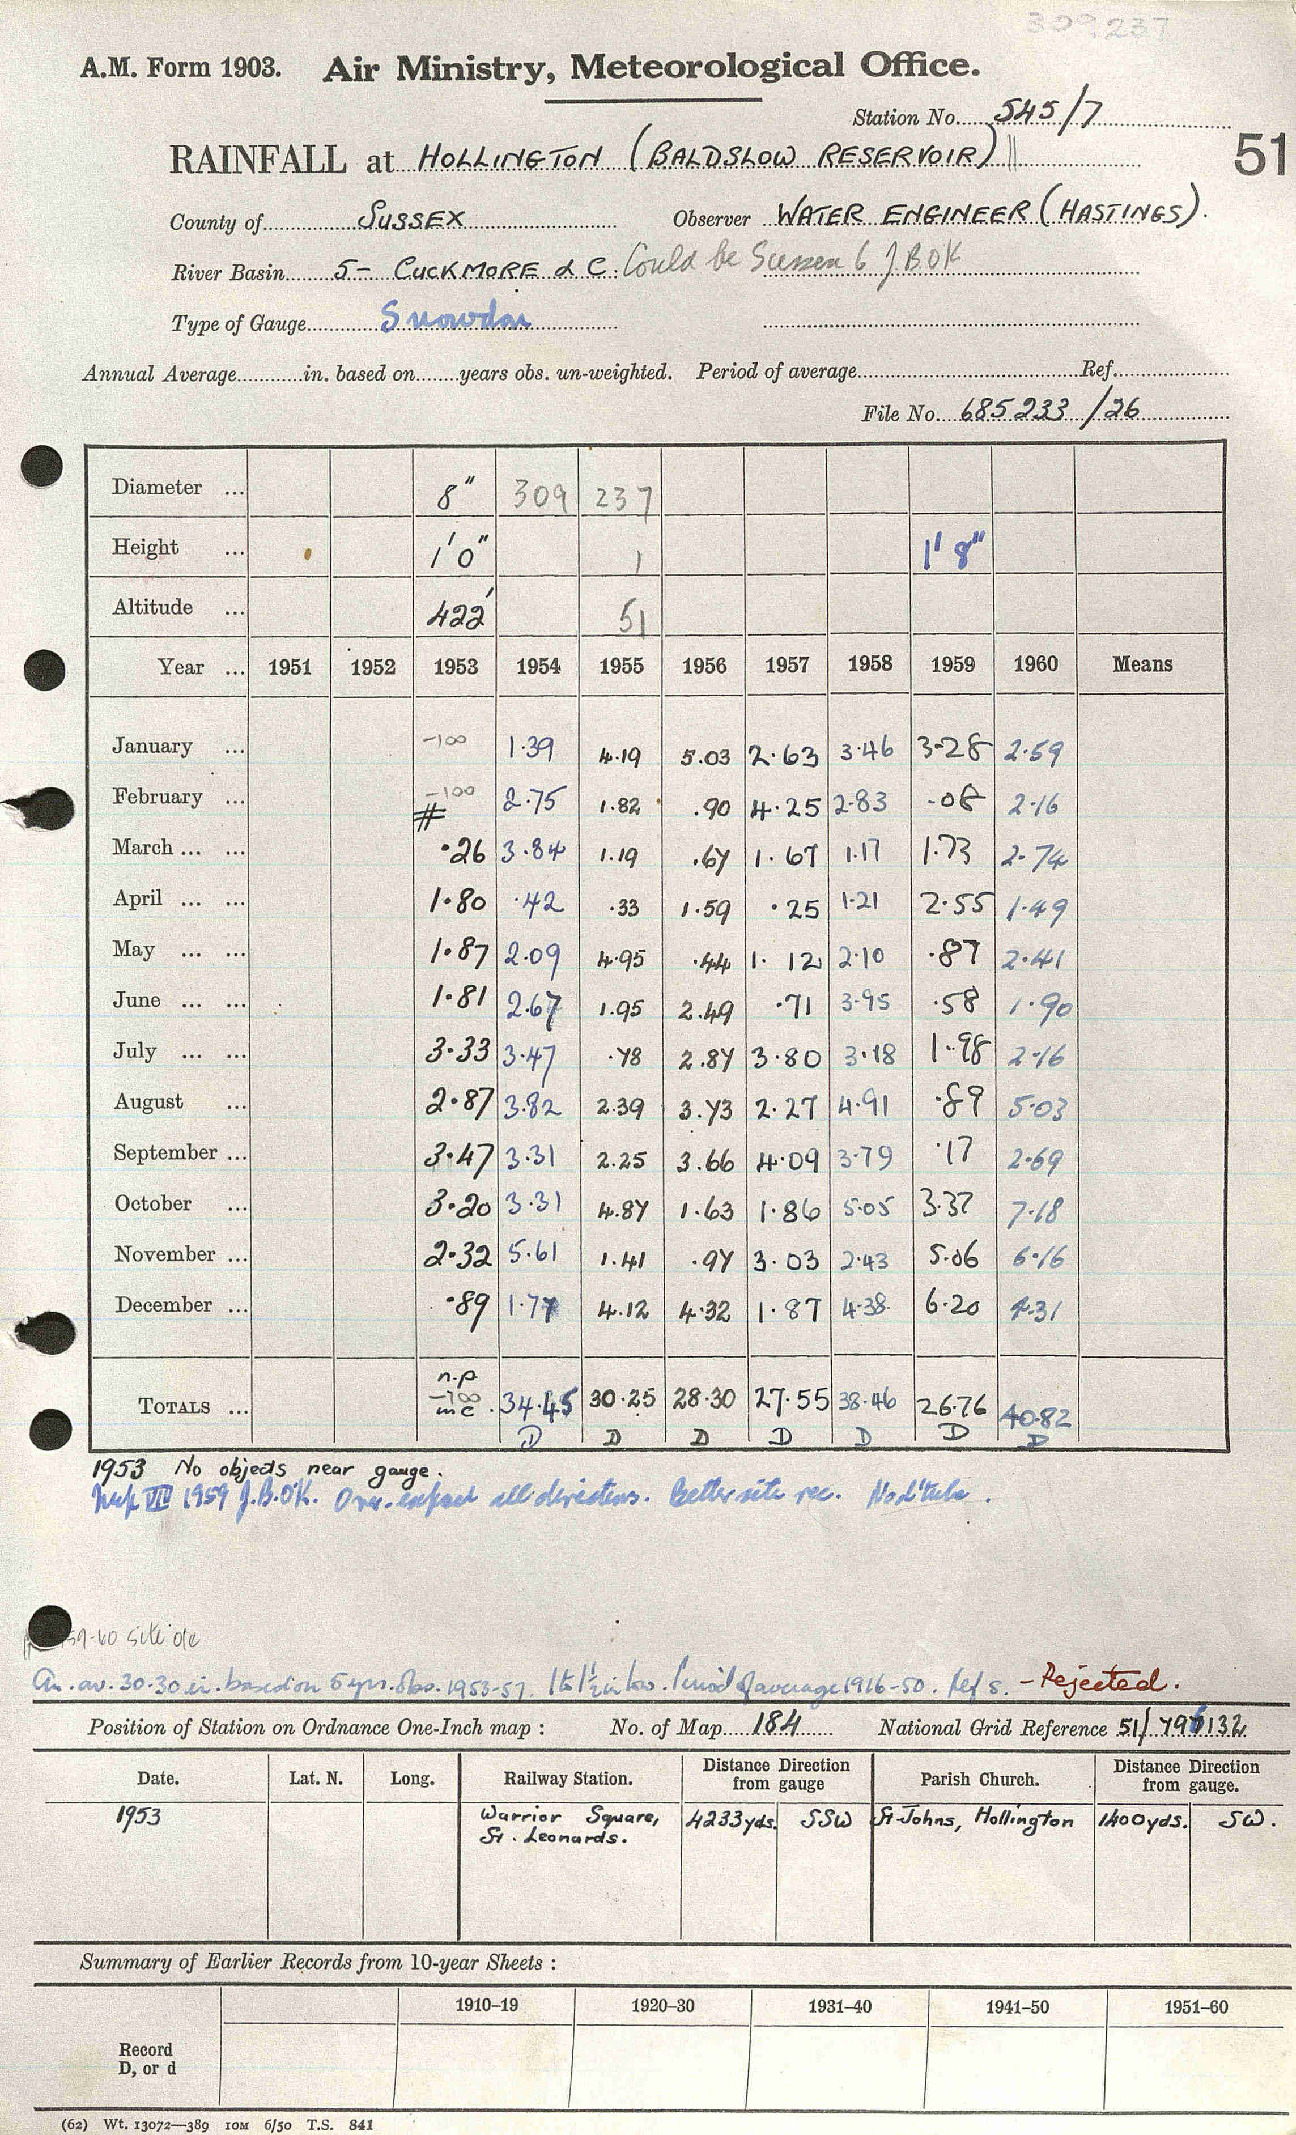 309237
A.M. Form 1903. Air Ministry, Meteorological Office.
Station No. 545/7
RAINFALL at HOLLINGTON (BALDSLOW RESERVOIR)
51
County of SUSSEX Observer WATER ENGINEER (HASTINGS).
River Basin 5 - CUCKMORE & C. Could be Sussex 6 J B OK
Type of Gauge Snowdon
Annual Average in. based on years obs. un-weighted. Period of average Ref.
File No. 685233/26
Diameter ... 8" 309 237
Height ... 1'0" 1 1'8"
Altitude ... 422' 51
Year ... 1951 1952 1953 1954 1955 1956 1957 1958 1959 1960 Means
January ... -100 1.39 4.19 5.03 2.63 3.46 3.28 2.59
February ... -100 # 2.75 1.82 .90 4.25 2.83 .08 2.16
March ... ... .26 3.84 1.19 .67 1.67 1.17 1.73 2.74
April ... ... 1.80 .42 .33 1.59 .25 1.21 2.55 1.49
May ... ... 1.87 2.09 4.95 .44 1.12 2.10 .87 2.41
June ... ... 1.81 2.67 1.95 2.49 .71 3.95 .58 1.90
July ... ... 3.33 3.47 .78 2.87 3.80 3.18 1.98 2.16
August ... 2.87 3.82 2.39 3.73 2.27 4.91 .89 5.03
September ... 3.47 3.31 2.25 3.66 4.09 3.79 .17 2.69
October ... 3.20 3.31 4.87 1.63 1.86 5.05 3.37 7.18
November ... 2.32 5.61 1.41 .97 3.03 2.43 5.06 6.16
December ... .89 1.77 4.12 4.32 1.87 4.38 6.20 4.31
n.p
TOTALS ... -100 34.45 30.25 28.30 27.55 38.46 26.76 40.82
inc. D D D D D D D
1953 No objects near gauge.
Insp. VII 1959 J.B.O'K. Over-exposed all directions. Better site rec. No d'tube.
59-60 site o/c
An. av. 30.30 in. based on 5 yrs. obs. 1953-57. Period of average 1916-50. Ref s. - Rejected.
Position of Station on Ordnance One-Inch map : No. of Map 184 National Grid Reference 51/796132
Date. Lat. N. Long. Railway Station. Distance Direction from gauge Parish Church. Distance Direction from gauge.
1953 Warrior Square, 4233yds. SSW St Johns, Hollington 1400yds. SW.
St. Leonards.
Summary of Earlier Records from 10-year Sheets :
1910–19 1920–30 1931–40 1941–50 1951–60
Record
D, or d
(62) Wt. 13072—389 10M 6/50 T.S. 841